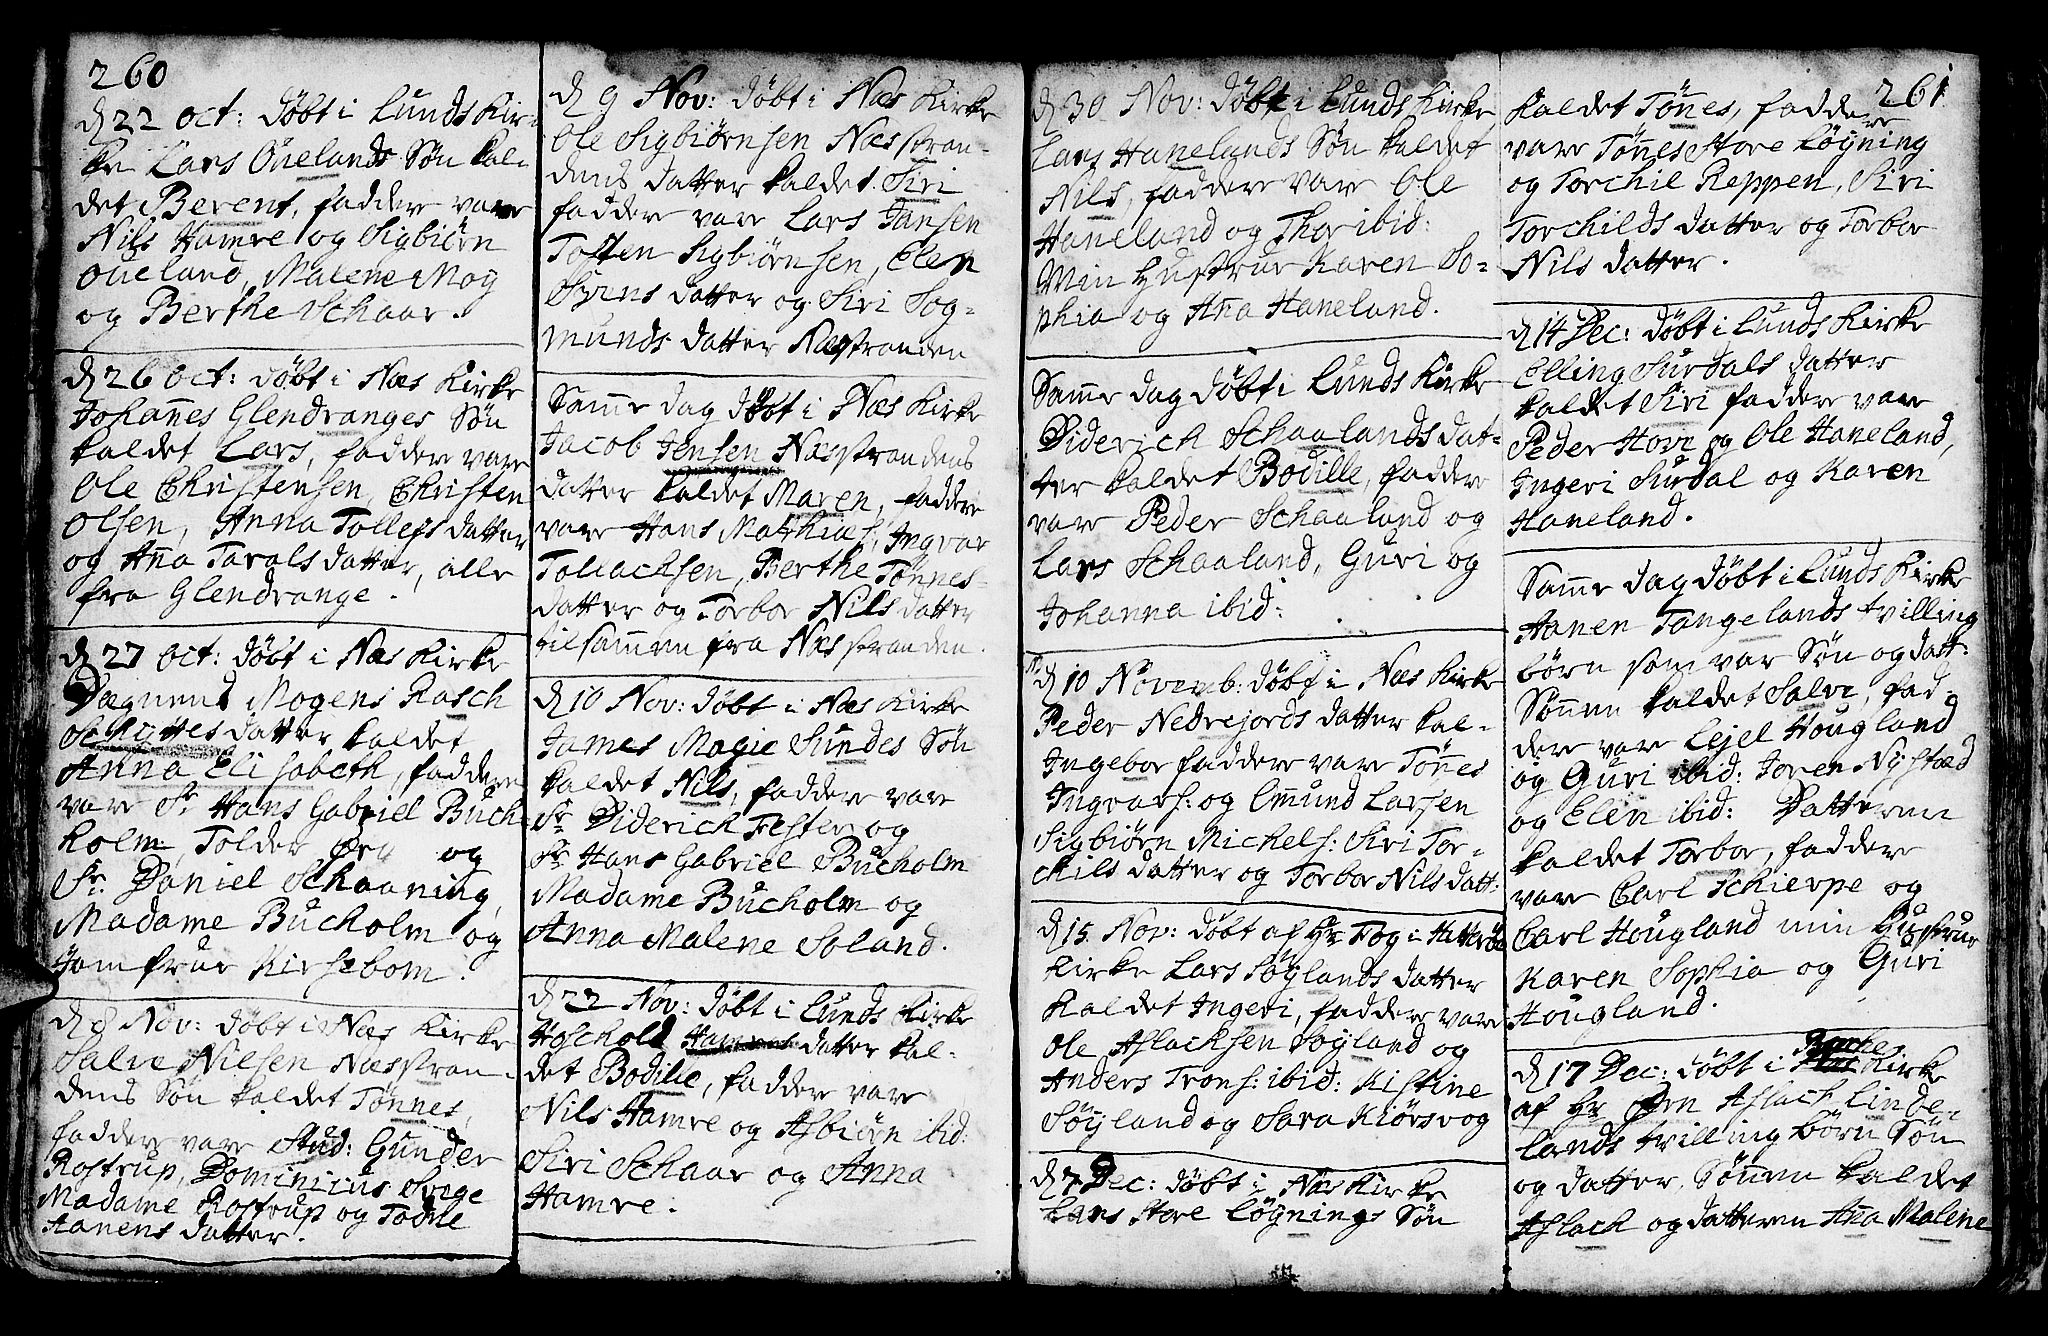 260
d 22 Oct: døbt i Lunds Kir-
ke Lars Ouelands Søn kal-
det Berent, faddere vare
Nils Hamre og Sigbiørn
Oueland, Malene Moy
og Berthe Schaar.
d 26 Oct: døbt i Næs Kirke
Johan̄es Glendranges Søn
kaldet Lars, faddere vare
Ole Christensen, Christen
Olsen, Anna Tollefs datter
og An̄a Taralsdatter, alle
fra Glendrange.
d 27 Oct: døbt i Næs Kirke
Mogens Rasch
Schÿttes datter kaldet
Anna Elisabeth, faddere
vare Sr Hans Gabriel Buch-
holm, Tolder og
Sr. Daniel Schaaning,
Madame Bucholm og
Jomfrue Kirsebom.
d 8 Nov: døbt i Næs Kirke
Salve Nilsen Næsstran-
dens Søn kaldet Tønnes,
faddere vare Stud: Gunder
Rostrup, Dominicus
Madame Rostrup og Todne
Aanens datter.
d 9 Nov: døbt i Næs Kirke
Ole Sigbiørnsen Næsstran-
dens datter kaldet Siri
faddere vare Lars Jansen
Tosten Sigbiørnsen, Elen
Syvens datter og Siri Sog-
munds datter Næsstranden
Sam̄e dag døbt i Næs Kirke
Jacob Jensen Næsstrandens
datter kaldet Maren, faddere
vare Hans Mathias, Ingvar
Tollachsen, Berthe Tønnes-
datter og Torbor Nils datter
tilsam̄en fra Næsstranden.
d 10 Nov: døbt i Næs Kirke
James Magie Sundes Søn
kaldet Nils, faddere vare
Sr Diderich Fester og
Sr Hans Gabriel Bucholm
Madame Bucholm og
Anna Malene Soland.
d 22 Nov: døbt i Lunds Kirke
Hoschold datter kal-
det Bodille, faddere vare
Nils Hamre og Asbiørn ibid:
Siri Schaar og Anna
Hamre.
d 30 Nov: døbt i Lunds Kirke
Lars Hanelands Søn kaldet
Nils, faddere vare Ole
Haneland og Thor ibid:
Min Hustrue Karen So-
phia og An̄a Haneland.
Sam̄e dag døbt i Lunds Kirke
Diderich Schaalands dat-
ter kaldet Bodille, faddere
var Peder Schaaland og
Lars Schaaland, Guri og
Johanna ibid:
d 10 Novemb: døbt i Næs Kirke
Peder Nedrejords datter kal-
Ingebor faddere vare Tøn̄es
Ingvars: og Em̄und Larsen
Sigbiørn Michels: Siri Tor-
chils datter og Torbor Nils datt:
d 15 Nov: døbt af Hr Tog i Hitterøe
Kirke Lars Søylands datter
kaldet Ingeri, faddere vare
Ole Aslachsen Søyland og
Anders Trons: ibid: Kistine
Søyland og Sara Kiørsvog
d 7 Dec: døbt i Næs Kirke
Lars Store Løynings Søn
261
kaldet Tøn̄es, faddere
vare Tøn̄es Store Løyning
og Torchil Reppen, Siri
Torchilds datter og Torbor
Nils datter.
d 14 Dec: døbt i Lunds Kirke
Elling Surdals datter
kaldet Siri faddere vare
Peder Hove og Ole Haneland,
Ingeri Surdal og Karen
Haneland.
Sam̄e dag døbt i Lunds Kirke
Aanen Tangelands tvilling
børn som var Søn og datt:
Søn̄en kaldet Salve, fad
dere vare Lejel Hougland
og Guri ibid: Joren Nystæd
og Elin ibid: Datteren
kaldet Torbor, faddere
var Carl Schierpe og
Carl Hougland min Hustrue
Karen Sophia og Guri
Hougland.
d 17 Dec: døbt i Backes Kirke
af Hr Aslach Linde-
lands tvilling børn Søn
og datter. Søn̄en kaldet
Aslach og datteren An̄a Malene